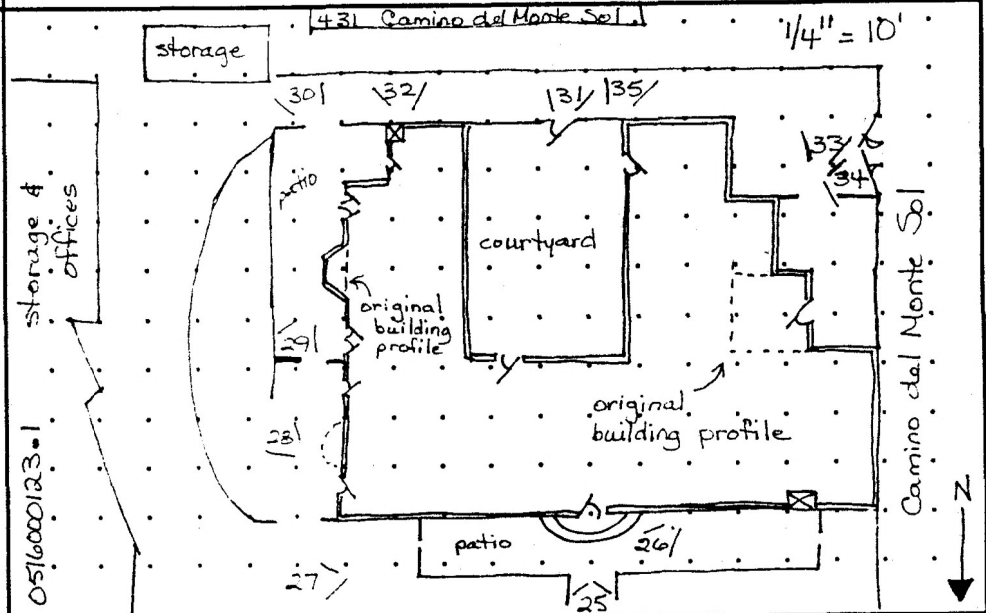 431 Camino del Monte Sol.
1/4" = 10'
storage
30
32
31
35
33
34
patio
storage &
offices
courtyard
original
building
profile
29
original
building profile
28
Camino del Monte Sol
N
0516000123.1
patio
26
27
25